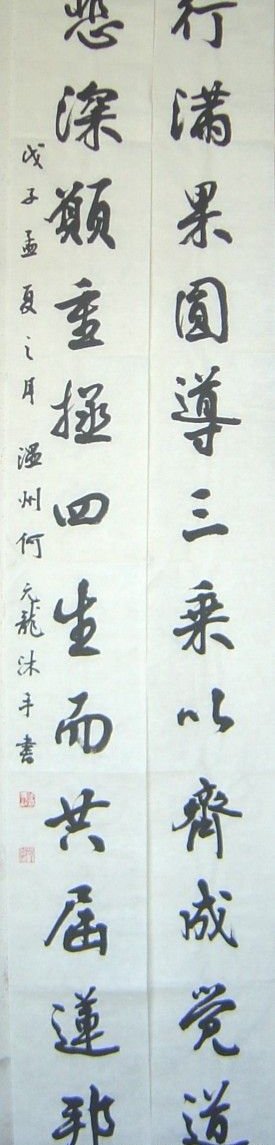 行满果圆导三乘以齊成觉道
悲深願重拯四生而共届莲邦
戊子孟夏之月温州何元龍沐手書